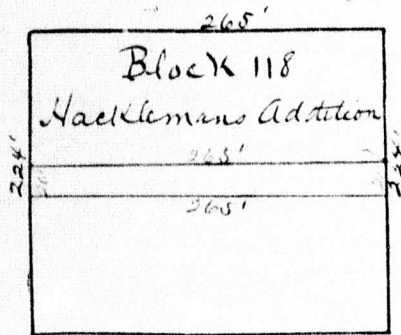 265'
Block 118
Hacklemans Addition
224'
265'
224'
265'